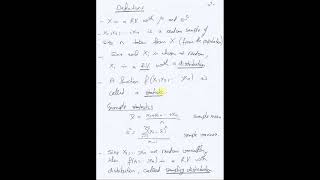 Definitions
- X is a RV with μ and σ²
X₁, X₂, ... xn is a random sample of
size n taken from X (from the population)
- Since each Xi is chosen at random
Xi is a R.V. with a distribution
- A function f(X₁, X₂, ... xn) is
called a statistic
Sample statistics
X̄ = sample mean
S² = sample variance
- Since x₁, ... xn are random variables
then f(x₁, ... xn) is a RV with
distribution, called sampling distribution